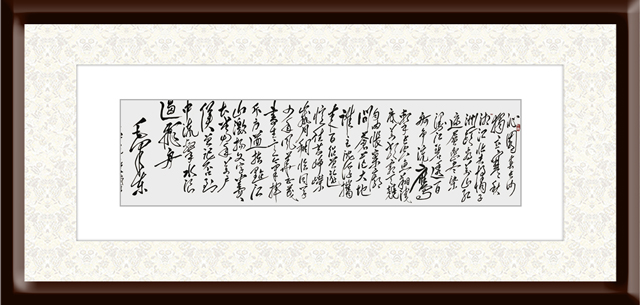 沁园春长沙
独立寒秋
湘江北去橘子
洲头看万山红
遍层林尽染
漫江碧透百
舸争流鹰
击长空鱼翔浅
底万类霜天竞
自由怅寥廓
问苍茫大地
谁主沉浮携
来百侣曾游
忆往昔峥嵘
岁月稠恰同学
少年风华正茂
书生意气挥
斥方遒指点江
山激扬文字粪土
当年万户
侯曾记否到
中流击水浪
遏飞舟
毛泽东